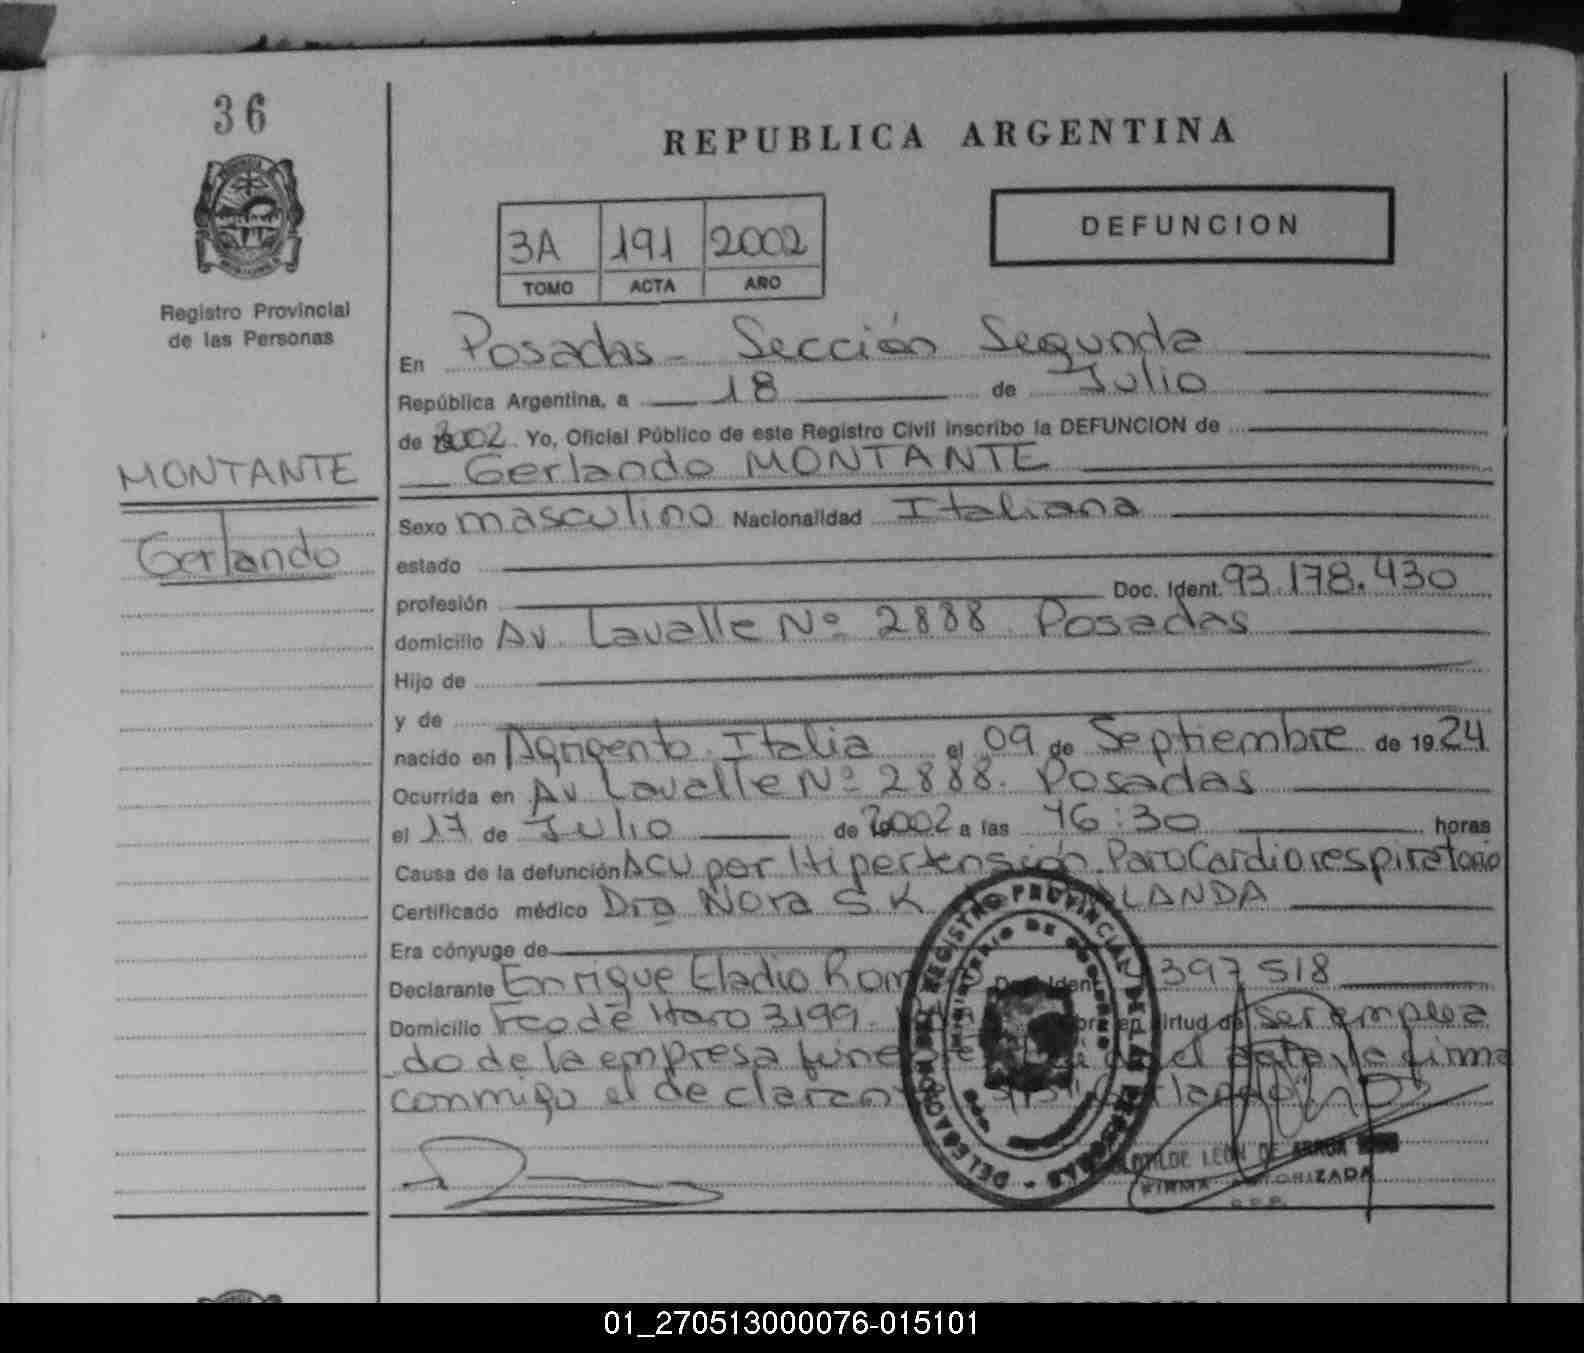 36
REPUBLICA ARGENTINA
DEFUNCION
3A 191 2002
TOMO ACTA AÑO
Registro Provincial
de las Personas
En Posadas - Sección Segunda
República Argentina, a 18 de Julio
de 2002. Yo, Oficial Público de este Registro Civil inscribo la DEFUNCION de
Gerlando MONTANTE
MONTANTE
Gerlando
Sexo masculino Nacionalidad Italiana
estado
profesión Doc. Ident. 93.178.430
domicilio Av. Lavalle Nº 2888 Posadas
Hijo de
y de
nacido en Agrigento. Italia el 09 de Septiembre de 1924
Ocurrida en Av Lavalle Nº 2888. Posadas
el 17 de Julio de 2002 a las 16:30 horas
Causa de la defunción ACV por Hipertensión. Paro Cardiorespiratorio
Certificado médico Dra Nora S.K LANDA
Era cónyuge de
Declarante Enrique Eladio Rom Doc. Ident. 397518
Domicilio Fco de Haro 3199. obra en virtud de ser emplea
do de la empresa fune acta, la firma
conmigo el declarant
DELEGACION DEL REGISTRO PROVINCIAL DE LAS PERSONAS
MINISTERIO DE GOBIERNO
CLOTILDE LEON DE ARRUA
FIRMA AUTORIZADA
R.P.P.
01_270513000076-015101